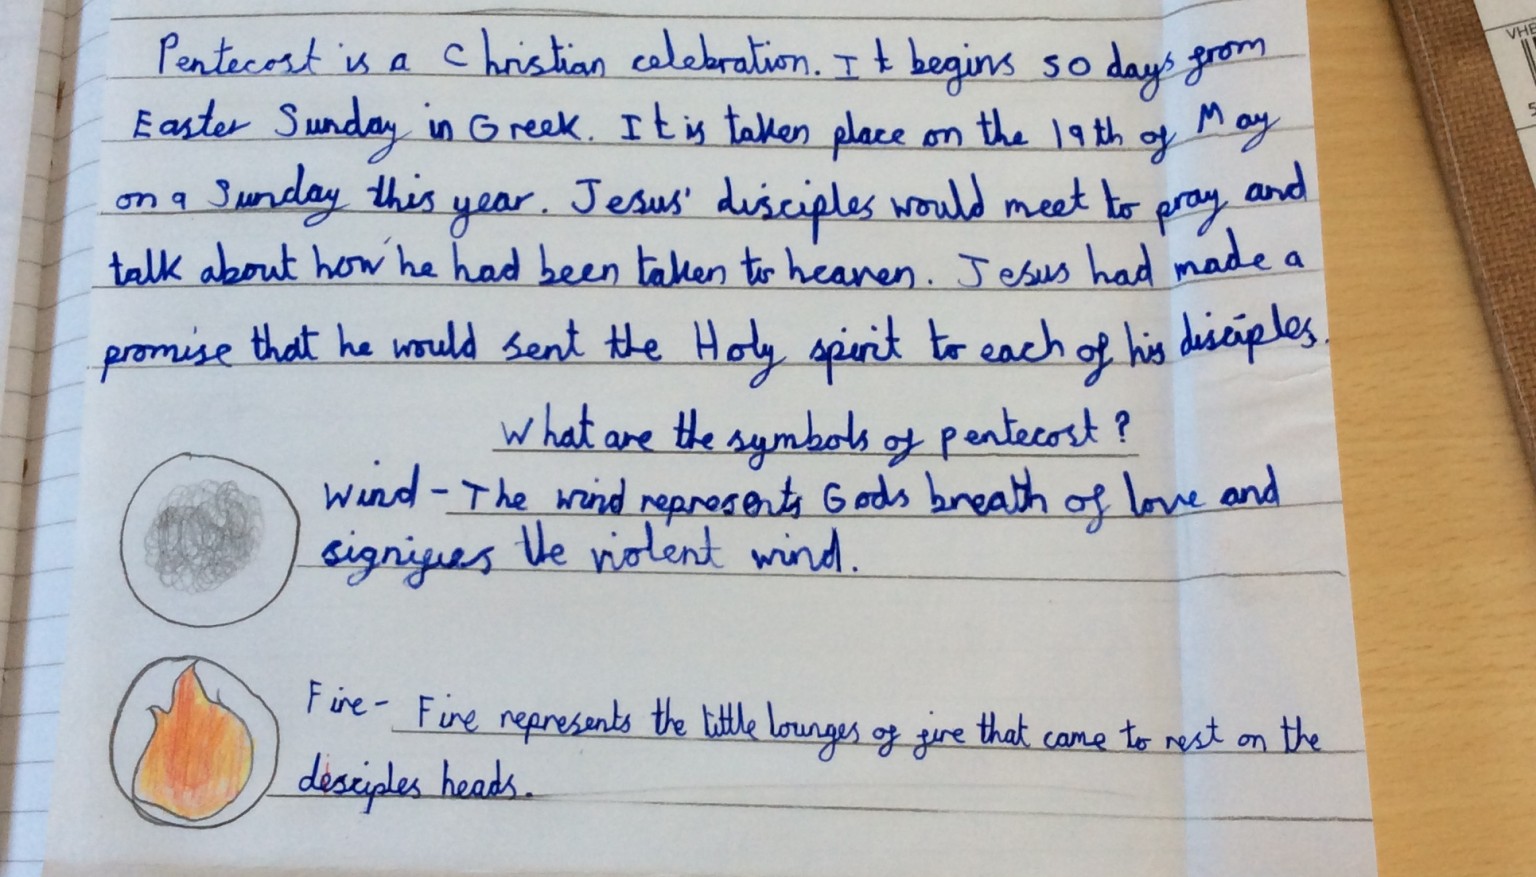 Pentecost is a Christian celebration. It begins 50 days from
Easter Sunday in Greek. It is taken place on the 19th of May
on a Sunday this year. Jesus' disciples would meet to pray and
talk about how he had been taken to heaven. Jesus had made a
promise that he would sent the Holy spirit to each of his disciples.
What are the symbols of pentecost?
Wind - The wind represents Gods breath of love and
signifies the violent wind.
Fire - Fire represents the little lounges of fire that came to rest on the
disciples heads.
VHE
5